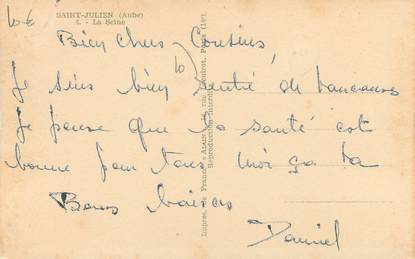 SAINT-JULIEN (Aube)
4. - La Seine
Bien chers Cousins
Je suis bien rentré de vacances
Je pense que la santé est
bonne pour tous moi ça va
Bons baisers
Daniel
Reproduction interdite